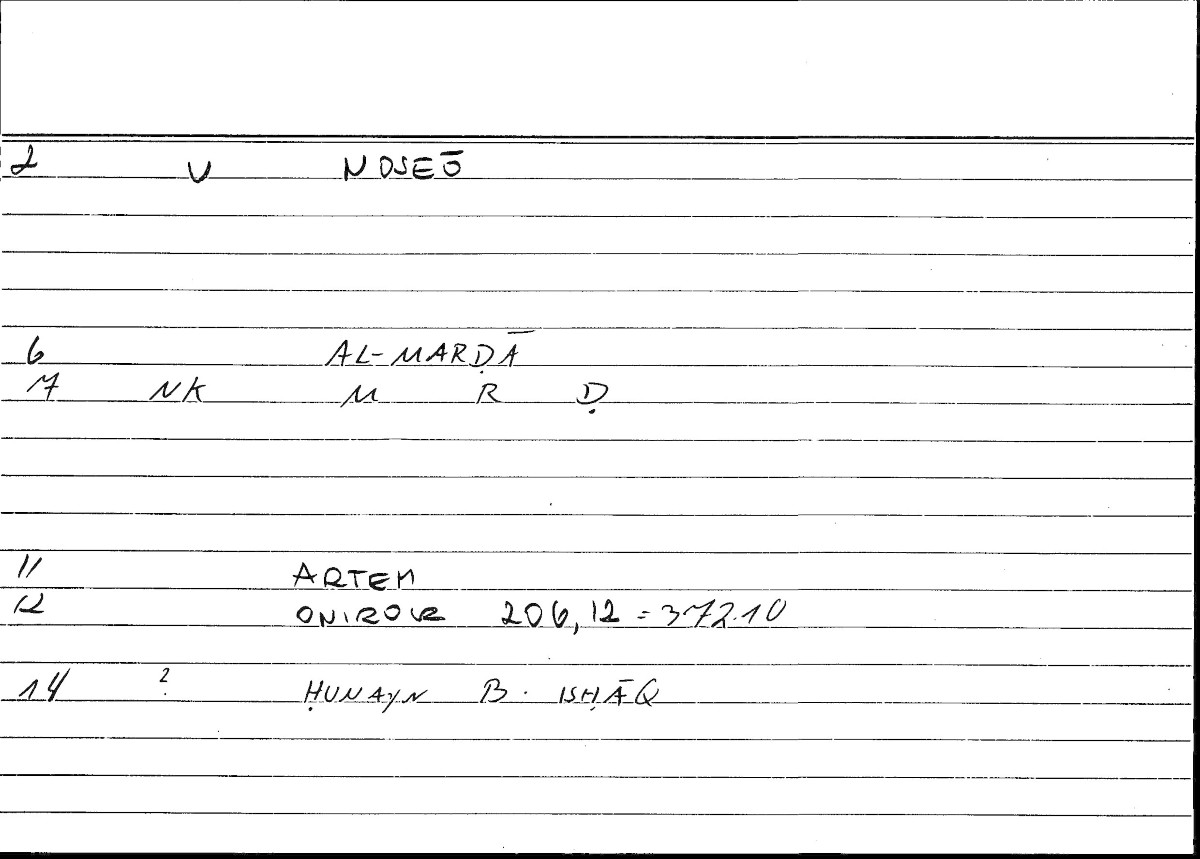 2 V NOSEŌ
6 AL-MARḌĀ
7 NK M R Ḍ
11 ARTEM
12 ONIROCR 206,12 = 372.10
14 ? ḤUNAYN B. ISḤĀQ